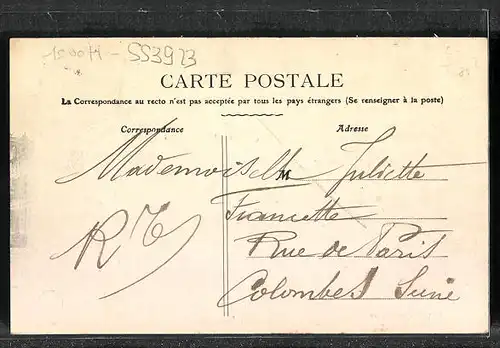 150071 - SS3923
CARTE POSTALE
La Correspondance au recto n'est pas acceptée par tous les pays étrangers (Se renseigner à la poste)
Correspondance
Adresse
Mademoiselle Juliette
M
Francette
Rue de Paris
Colombes Seine